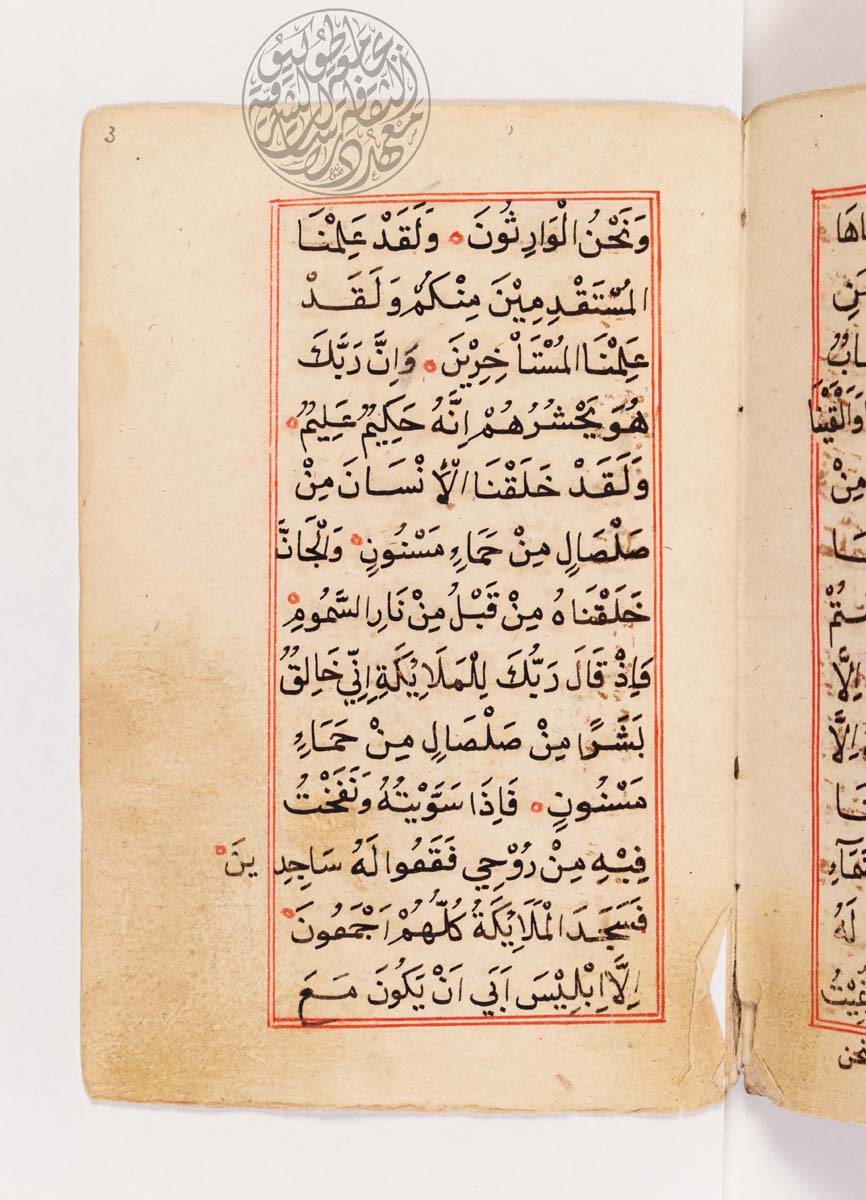 3
وَنَحْنُ الْوَارِثُونَ ۰ وَلَقَدْ عَلِمْنَا
المُسْتَقْدِمِيْنَ مِنْكُمْ وَلَقَدْ
عَلِمْنَا المُسْتَأْخِرِيْنَ ۰ وَاِنَّ رَبَّكَ
هُوَ يَحْشُرُهُمْ اِنَّهُ حَكِيمٌ عَلِيمٌ ۰
وَلَقَدْ خَلَقْنَا الْاِنْسَانَ مِنْ
صَلْصَالٍ مِنْ حَمَاءٍ مَسْنُونٍ ۰ وَالْجَانَّ
خَلَقْنَاهُ مِنْ قَبْلُ مِنْ نَارِ السَّمُومِ ۰
فَاِذْ قَالَ رَبُّكَ لِلْمَلَايِكَةِ اِنِّي خَالِقٌ
بَشَرًا مِنْ صَلْصَالٍ مِنْ حَمَاءٍ
مَسْنُونٍ ۰ فَاِذَا سَوَّيْتُهُ وَنَفَخْتُ
فِيْهِ مِنْ رُوْحِي فَقَعُوا لَهُ سَاجِدِينَ ۰
فَسَجَدَ الْمَلَايِكَةُ كُلُّهُمْ اَجْمَعُونَ ۰
اِلَّا اِبْلِيْسَ اَبَي اَنْ يَكُونَ مَعَ
مِنْ
اِلَّا
لَهُ
نحن